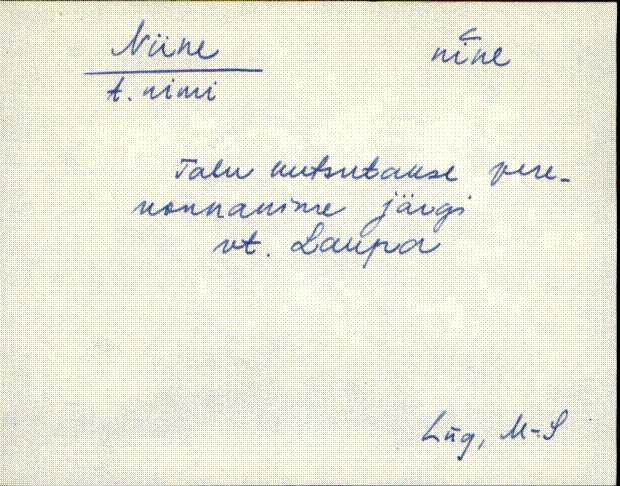 Niine nīne
t. nimi
Talu kutsutakse pere-
konnanime järgi
vt. Laupa
Lüg, M-S